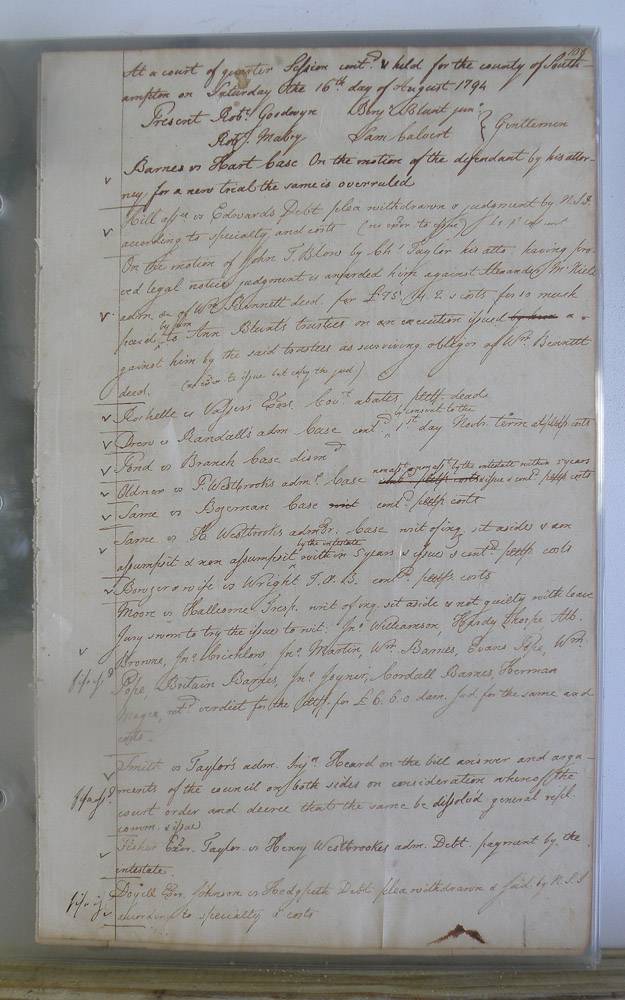 109
At a court of quarter Session contd. & held for the county of South-
ampton on Saturday the 16th day of August 1794
Present Robt. Goodwyn Benj. Blunt junr.
Robt. J. Mabry Sam Calvert } Gentlemen
Barnes vs Hart Case On the motion of the defendant by his attor-
ney, for a new trial the same is overruled
Hill assee. vs Edwards Debt plea withdrawn & judgment by N.S.I.
according to specialty and costs (no exor to issue)
On the motion of John T. Blow by Chs. Taylor his atto. having pro-
ved legal notice, judgment is awarded him against Alexander McNeil
adm. &c of Wm. Bennett decd. for £75. 4. 2. & costs for so much
paid by him to Ann Blunt's trustees on an execution issued a-
gainst him by the said trustees as surviving obligor of Wm. Bennett
decd.
Rochelle vs Vasser's Exors. Covt. abates, plttf. dead
Drew vs Randall's adm Case contd. by consent to the 1st day Novbr. term plttfs costs
Pond vs Branch Case dismd.
Oldner vs P. Westbrook's admr. Case non asst. & non asst. by the intestate within 5 years issue & contd. plttfs costs
Same vs Bozeman Case writ contd. plttfs costs
Same vs H. Westbrook's admr. Case writ of inq. set aside & non
assumpsit & non assumpsit by the intestate within 5 years & issue & contd. plttfs costs
Bowzer & wife vs Wright T.A.B. contd. plttfs. costs
Moore vs Hallcome Tresp. writ of inq. set aside & not guilty with leave
Jury sworn to try the issue to wit. Jno. Williamson, Hardy Tharpe Alb.
Browne, Jno. Crichlow Jno. Martin, Wm. Barnes, Evans Pope, Wm.
fi fa isd. Pope, Britain Barnes, Jno. Joyner, Cordall Barnes, Herman
Magee, retd. verdict for the plttf. for £6.6.0 dam. Jud for the same and
costs.
Smith vs Taylor's adm. Injn. Heard on the bill answer and argu-
ments of the council on both sides on consideration whereof the
court order and decree that the same be dissolvd general repl.
comm. & issue
Fisher Exor. Taylor vs Henry Westbrookes adm. Debt. payment by the
intestate.
Doyell Exr. Johnson vs Hedgpeth Debt plea withdrawn & jud. by N.S.I
according to specialty & costs